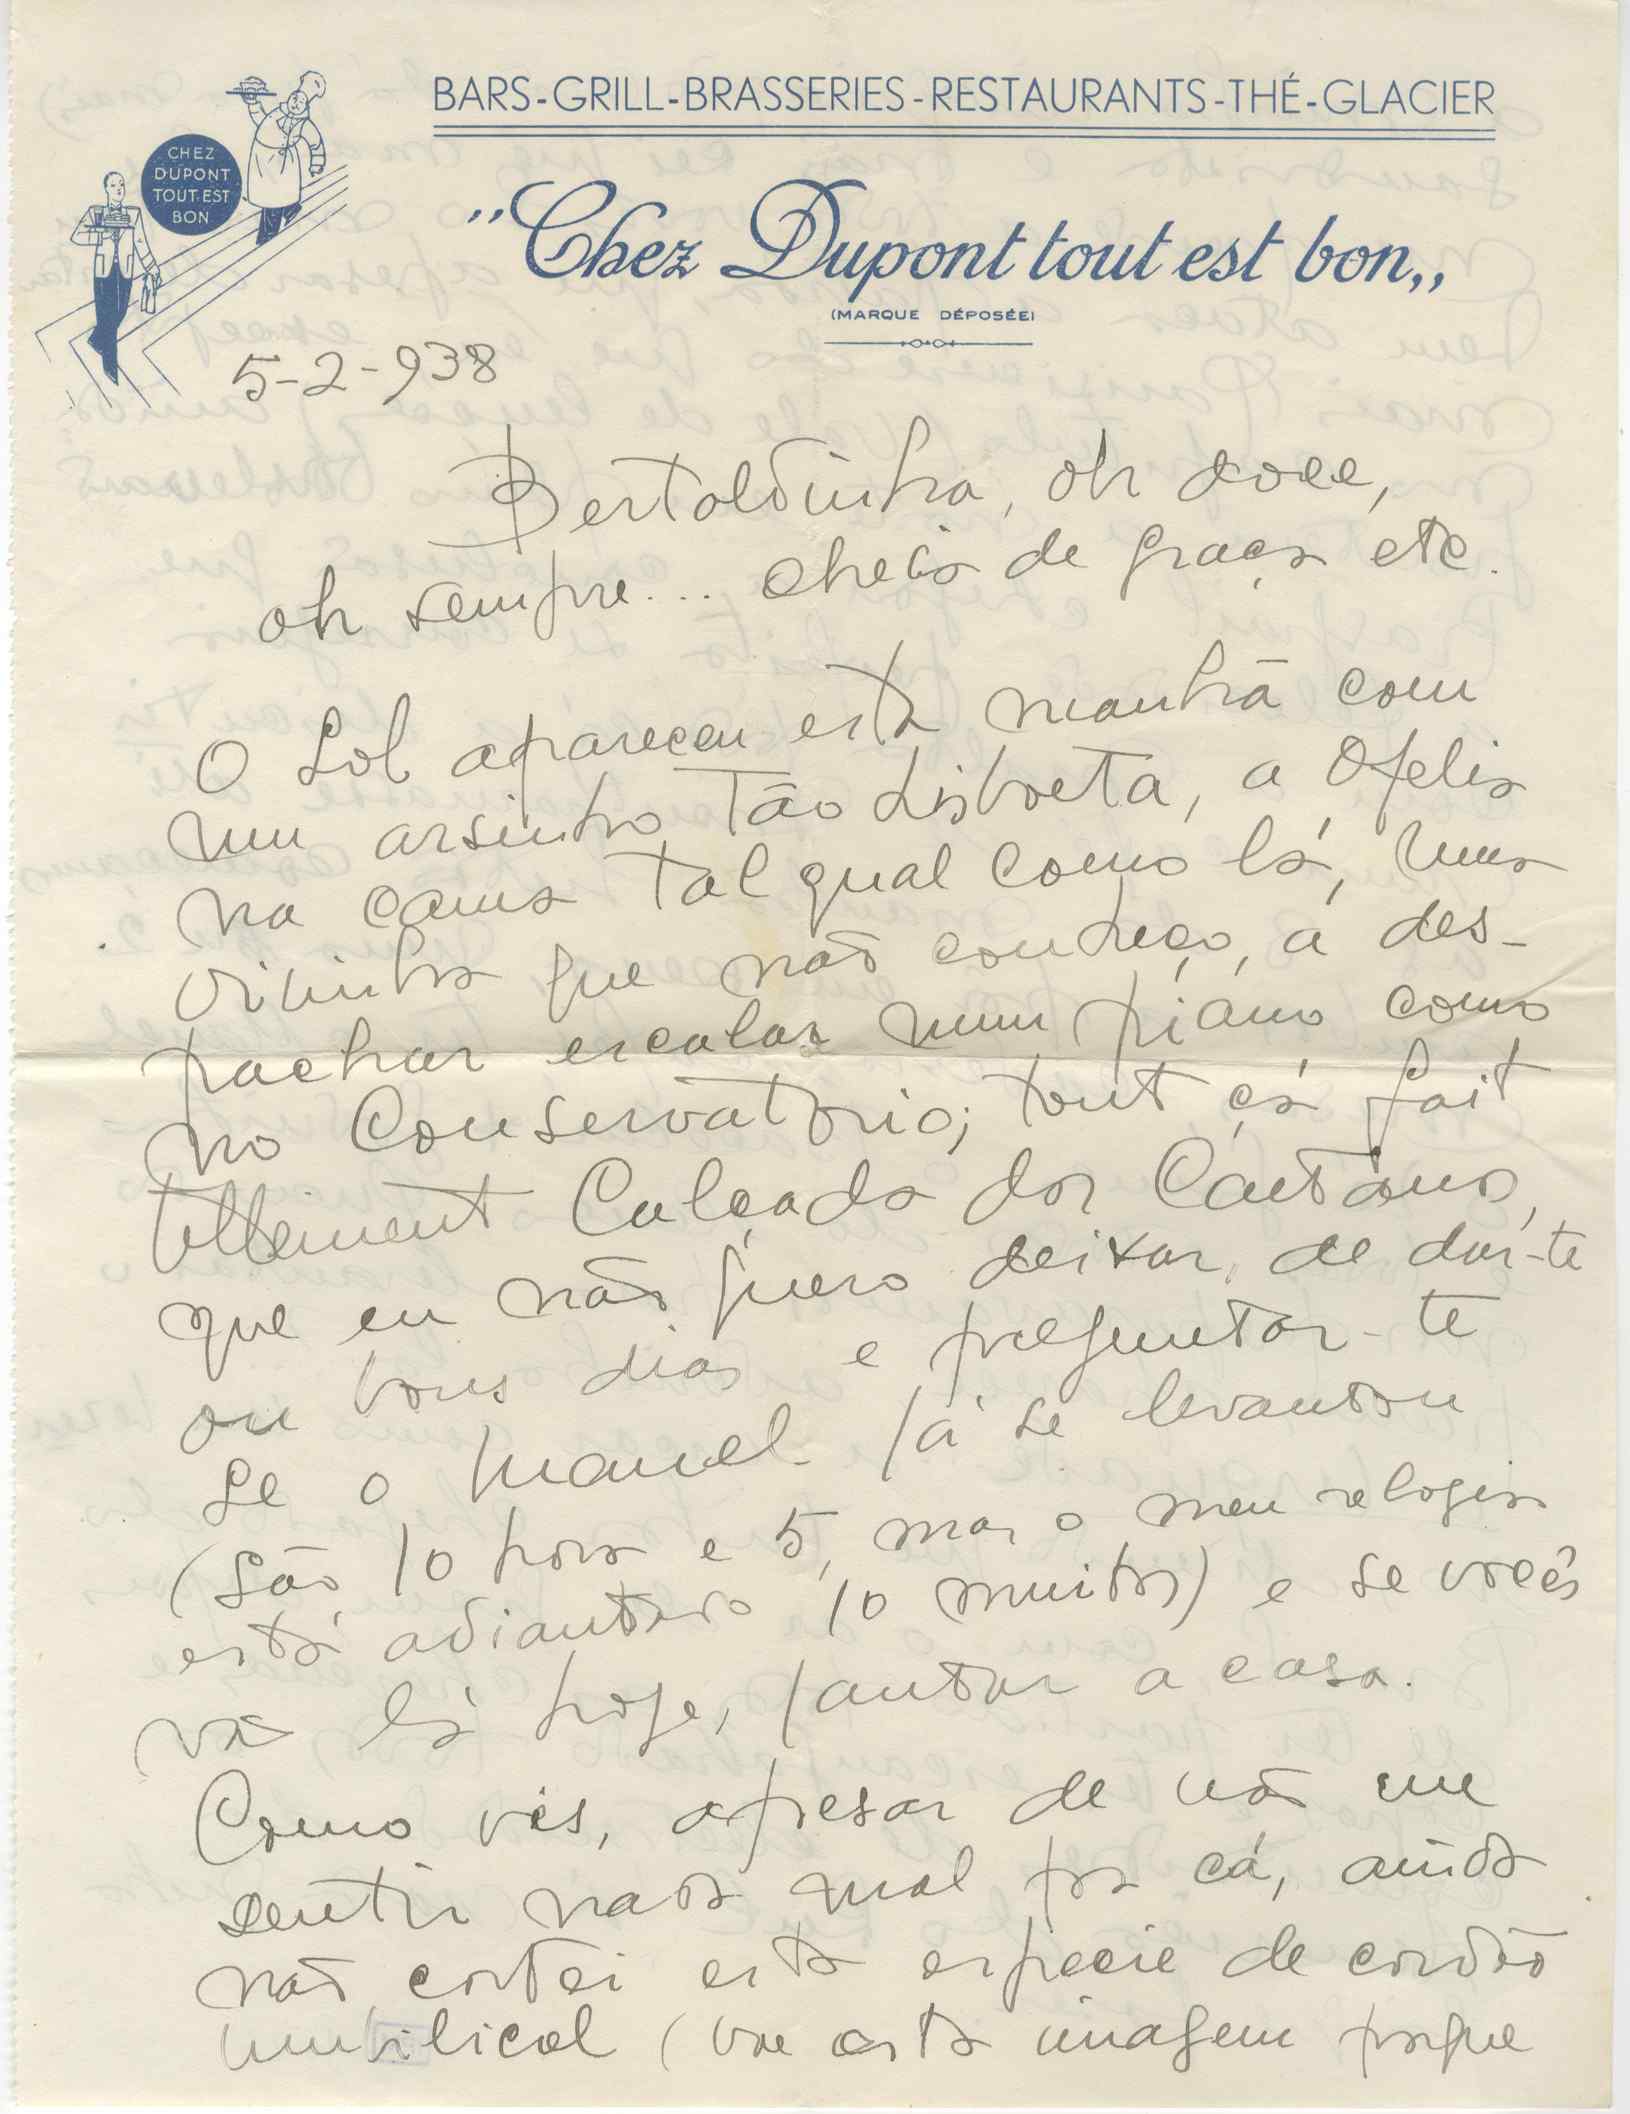 BARS-GRILL-BRASSERIES-RESTAURANTS-THÉ-GLACIER
CHEZ
DUPONT
TOUT EST
BON
"Chez Dupont tout est bon„
(MARQUE DÉPOSÉE)
5-2-938
Bertoldinha, oh doce,
oh sempre... cheia de graça etc.
O Sol apareceu esta manhã com
um arsinho tão Lisboeta, a Ofelia
na cama tal qual como lá, uma
vizinha que não conheço, a des-
pachar escalas num piano como
no Conservatorio; tout çá fait
tellement Calçada dos Caetanos,
que eu não quero deixar de dar-te
os bons dias e preguntar-te
se o Manuel já se levantou
(são 10 horas e 5, mas o meu relogio
está adiantado 10 minutos) e se vocês
vão lá hoje, jantar a casa.
Como vês, apesar de não me
sentir nada mal por cá, ainda
não cortei esta especie de cordão
umbilical (vae esta imagem porque